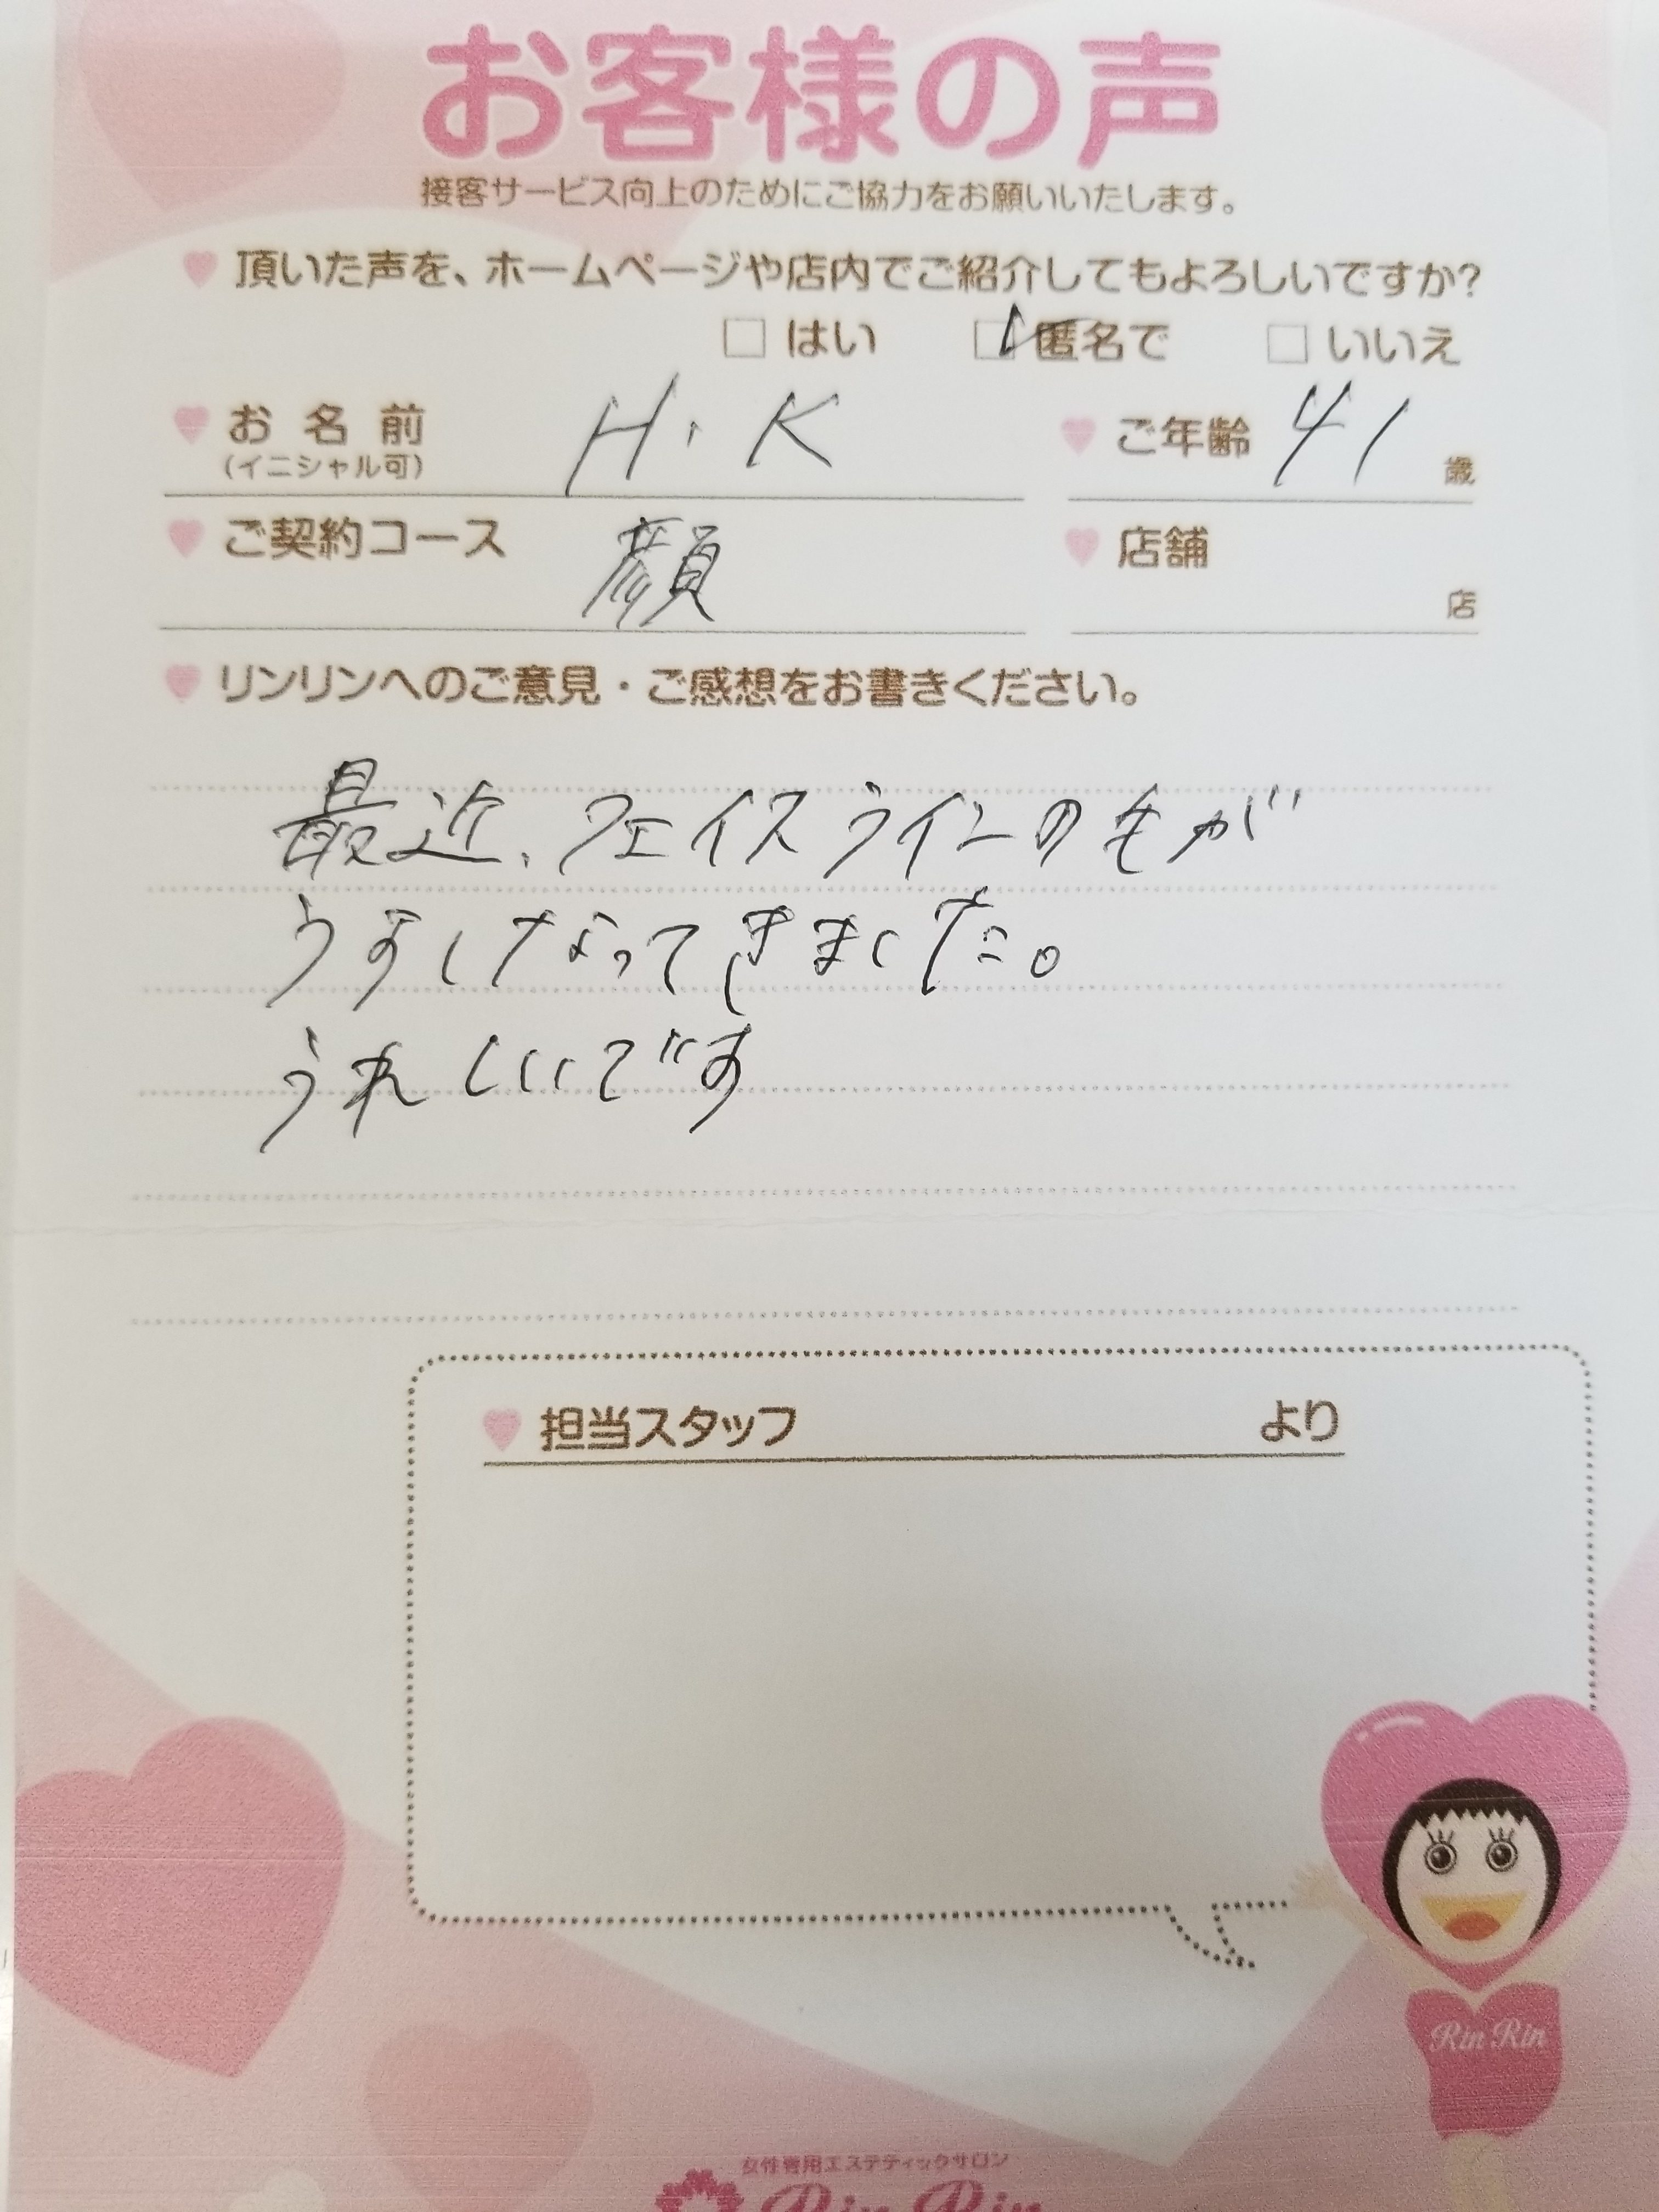 お客様の声
接客サービス向上のためにご協力をお願いいたします。
頂いた声を、ホームページや店内でご紹介してもよろしいですか?
はい 匿名で いいえ
お名前 H・K ご年齢 41 歳
(イニシャル可)
ご契約コース 顔 店舗 店
リンリンへのご意見・ご感想をお書きください。
最近、フェイスラインの毛が
うすくなってきました。
うれしいです
担当スタッフ より
Rin Rin
女性専用エステティックサロン
Rin Rin